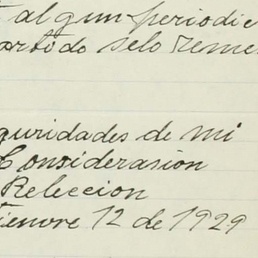 algun periodic
artido selo reme
guridades de mi
Considerasion
Releccion
iembre 12 de 1929